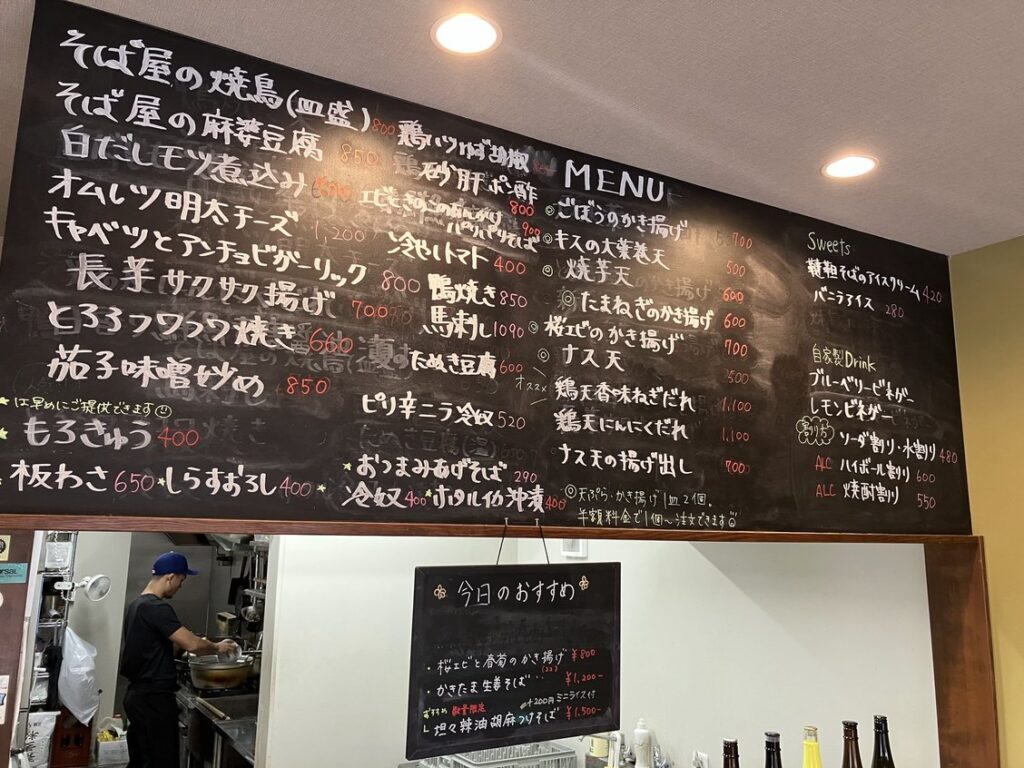 そば屋の焼鳥(皿盛) 800
そば屋の麻婆豆腐 850
白だしモツ煮込み
オムレツ明太チーズ 1,200
キャベツとアンチョビガーリック 800
長芋サクサク揚げ 700
とろろフワフワ焼き 660
茄子味噌炒め 850
★は早めにご提供できます
★もろきゅう 400
板わさ 650
★しらすおろし 400
鶏ハツゆず胡椒
砂肝ポン酢 800
エビときのこのあんかけ
パリパリそば 900
冷やしトマト 400
鴨焼き 850
馬刺し 1090
たぬき豆腐 600
ピリ辛ニラ冷奴 520
★おつまみあげそば 290
★冷奴 400
★ホタルイカ沖漬 400
MENU
◎ごぼうのかき揚げ 700
◎キスの大葉巻天 500
◎焼芋天 600
◎たまねぎのかき揚げ 600
◎桜エビのかき揚げ 700
◎ナス天 500
オススメ
鶏天香味ねぎだれ 1,100
鶏天にんにくだれ 1,100
ナス天の揚げ出し 700
◎天ぷら・かき揚げ1皿2個
半額料金で1個〜注文できます
Sweets
韃靼そばのアイスクリーム 420
バニラアイス 280
自家製Drink
ブルーベリービネガー
レモンビネガー
割り方
ソーダ割り・水割り 480
ALC ハイボール割り 600
ALC 焼酎割り 550
今日のおすすめ
・桜エビと春菊のかき揚げ ¥800
(2コ)
・かきたま生姜そば ¥1,200-
おすすめ 数量限定 +200円ミニライス付
坦々辣油胡麻つけそば ¥1,500-